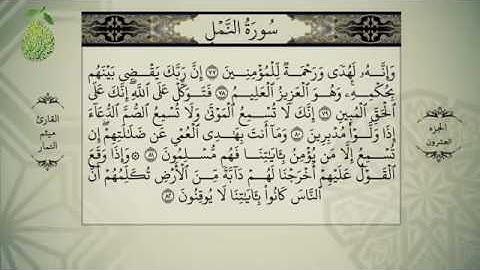 سُورَةُ النَّمْلِ
وَإِنَّهُۥ لَهُدًى وَرَحْمَةٌ لِّلْمُؤْمِنِينَ ۝٧٧ إِنَّ رَبَّكَ يَقْضِى بَيْنَهُم
بِحُكْمِهِۦ ۚ وَهُوَ ٱلْعَزِيزُ ٱلْعَلِيمُ ۝٧٨ فَتَوَكَّلْ عَلَى ٱللَّهِ ۖ إِنَّكَ عَلَى
ٱلْحَقِّ ٱلْمُبِينِ ۝٧٩ إِنَّكَ لَا تُسْمِعُ ٱلْمَوْتَىٰ وَلَا تُسْمِعُ ٱلصُّمَّ ٱلدُّعَآءَ
إِذَا وَلَّوْا۟ مُدْبِرِينَ ۝٨٠ وَمَآ أَنتَ بِهَـٰدِى ٱلْعُمْىِ عَن ضَلَـٰلَتِهِمْ ۖ إِن
تُسْمِعُ إِلَّا مَن يُؤْمِنُ بِـَٔايَـٰتِنَا فَهُم مُّسْلِمُونَ ۝٨١ ۞ وَإِذَا وَقَعَ
ٱلْقَوْلُ عَلَيْهِمْ أَخْرَجْنَا لَهُمْ دَآبَّةً مِّنَ ٱلْأَرْضِ تُكَلِّمُهُمْ أَنَّ
ٱلنَّاسَ كَانُوا۟ بِـَٔايَـٰتِنَا لَا يُوقِنُونَ ۝٨٢
القارئ
ميثم
التمار
الجزء
العشرون